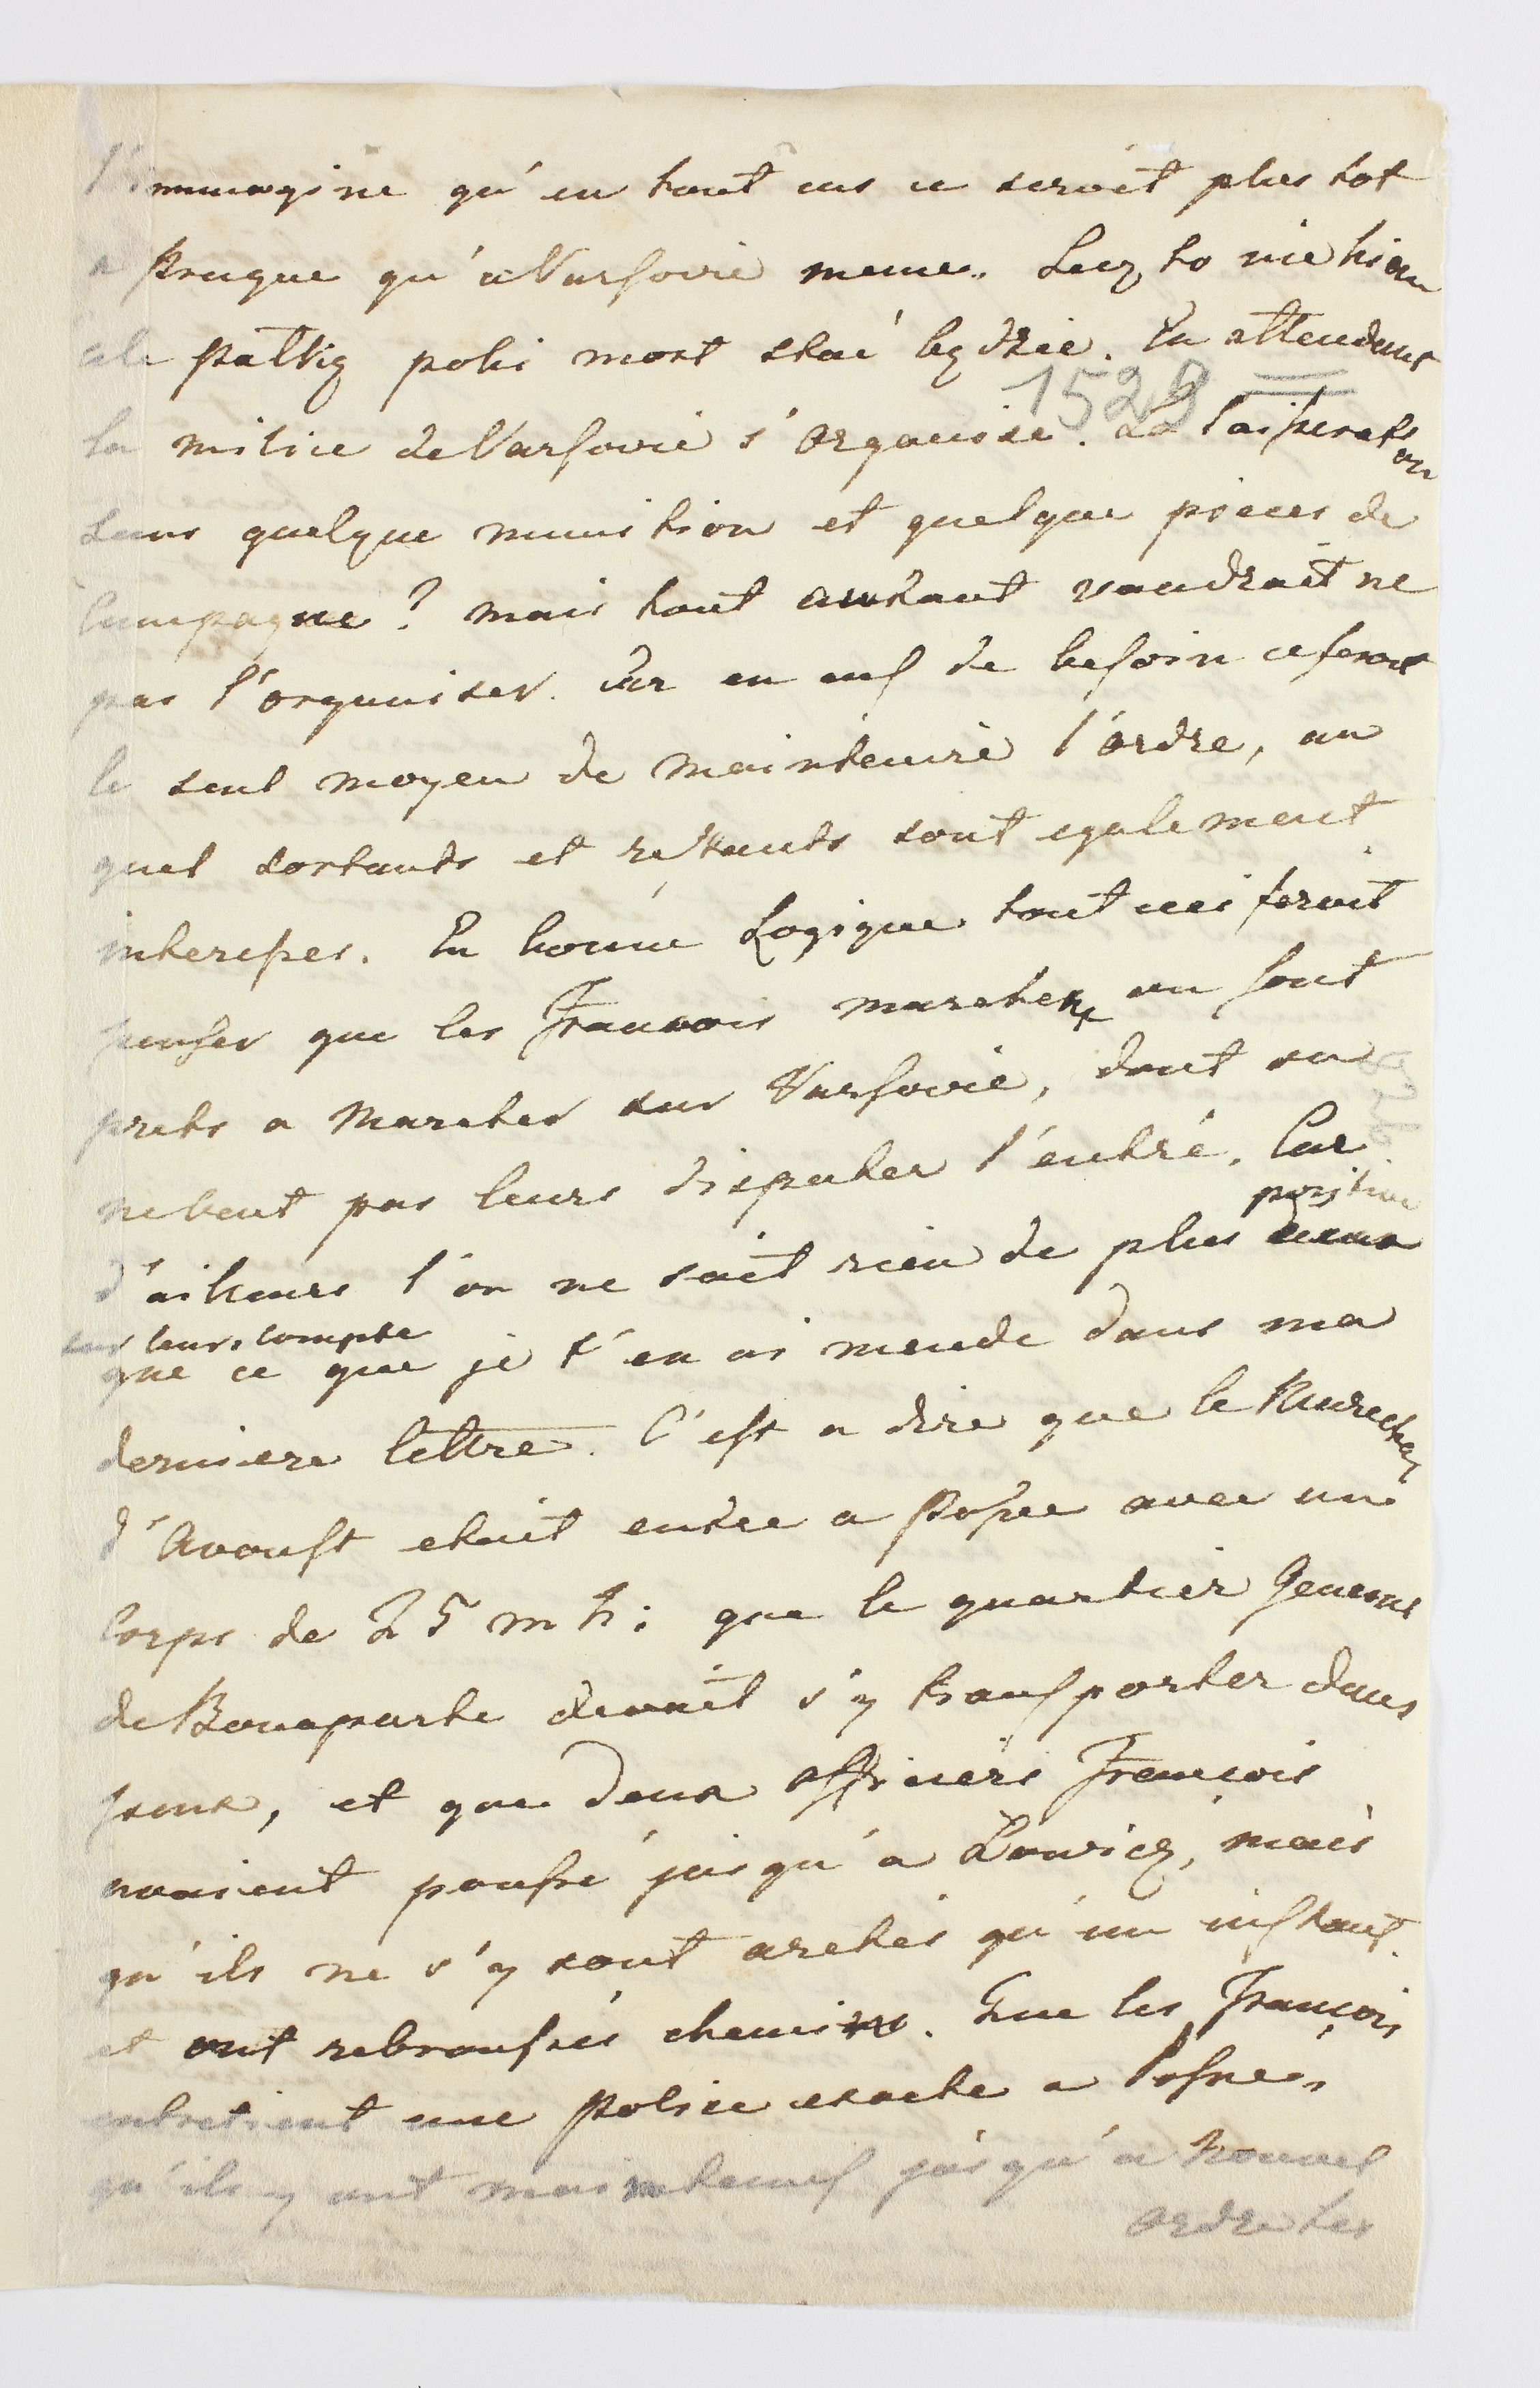 J'immagine qu'en tout cas ce seroit plus tot
a Prague qu'a Varsovie meme. Lecz to nie wiem
ale pattrz poki most stać będzie. En attendant
1529
la milice de Varsovie s'organise. La laisserat on
sans quelque munition et quelque pieces de
Campagne? mais tout autant vaudrait ne
pas l'organiser. Car en cas de besoin ce serait
le seul moyen de maintenire l'ordre, au
quel sortants et restants sont egalement
interesses. En bonne Logique tout ceci feroit
penser que les Francois marchent ou sont
prets a marcher sur Varsovie, dont on
ne veut pas leurs disputer l'entré. Car
positive
d'ailleurs l'on ne sait rien de plus
sur leurs compte
que ce que je t'en ai mende dans ma
derniere lettre. C'est a dire que le Marechal
d'Avoust etait entree a Posen avec un
Corps de 25 m h: que le quartier General
de Bonaparte devait s'y transporter dans
peux, et que deux officiers Francois
avaient pousse jusqu'a Lowicz, mais
qu'ils ne s'y sont aretés qu'un instant
et ont rebroussés chemin. Que les Francois
entretient une police exacte a Posne,
qu'ils y ont maintenus jusqu'a nouvel
ordre les